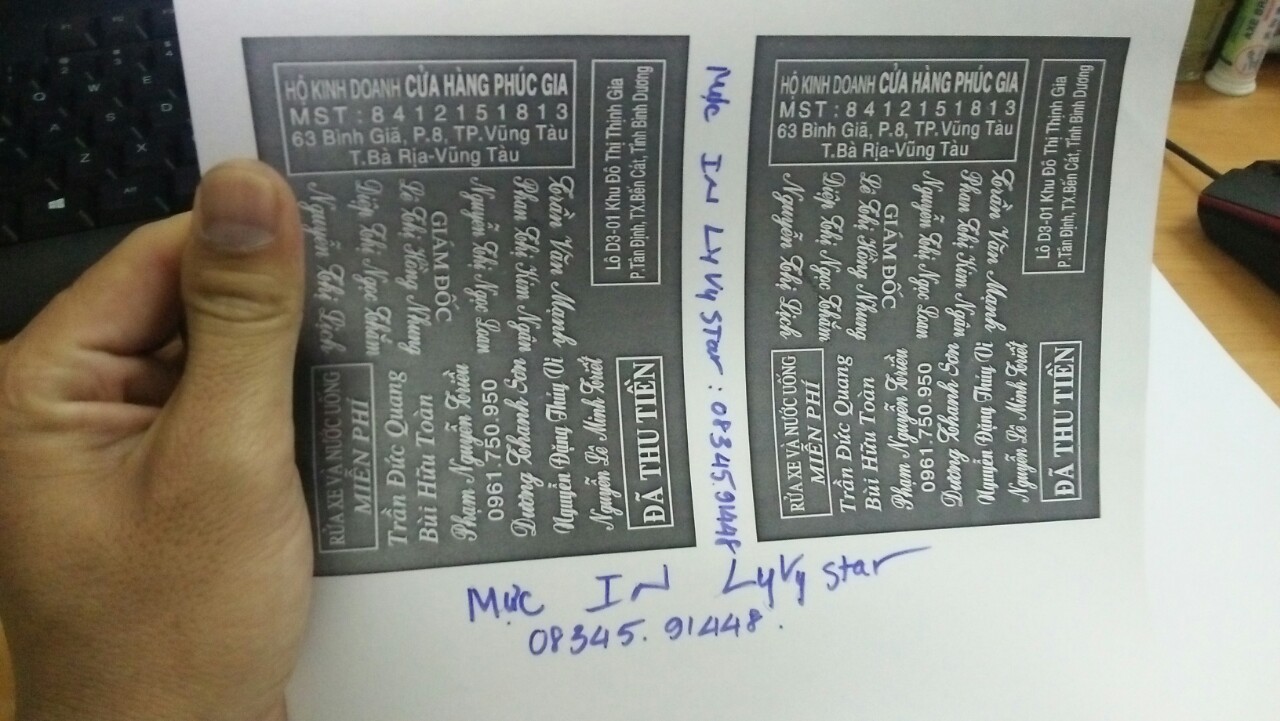 HỘ KINH DOANH CỬA HÀNG PHÚC GIA
MST : 8 4 1 2 1 5 1 8 1 3
63 Bình Giã, P.8, TP.Vũng Tàu
T.Bà Rịa-Vũng Tàu
Lô D3-01 Khu Đô Thị Thịnh Gia
P.Tân Định, TX.Bến Cát, Tỉnh Bình Dương
Trần Văn Mạnh
Phan Thị Kim Ngân
Nguyễn Thị Ngọc Loan
GIÁM ĐỐC
Lê Thị Hồng Nhung
Diệp Thị Ngọc Thắm
Nguyễn Thị Lịch
RỬA XE VÀ NƯỚC UỐNG
MIỄN PHÍ
Trần Đức Quang
Bùi Hữu Toàn
Phạm Nguyễn Triều
0961.750.950
Dương Thanh Sơn
Nguyễn Đặng Thúy Vi
Nguyễn Lê Minh Triết
ĐÃ THU TIỀN
Mực IN LyVy Star : 08345.91448
HỘ KINH DOANH CỬA HÀNG PHÚC GIA
MST : 8 4 1 2 1 5 1 8 1 3
63 Bình Giã, P.8, TP.Vũng Tàu
T.Bà Rịa-Vũng Tàu
Lô D3-01 Khu Đô Thị Thịnh Gia
P.Tân Định, TX.Bến Cát, Tỉnh Bình Dương
Trần Văn Mạnh
Phan Thị Kim Ngân
Nguyễn Thị Ngọc Loan
GIÁM ĐỐC
Lê Thị Hồng Nhung
Diệp Thị Ngọc Thắm
Nguyễn Thị Lịch
RỬA XE VÀ NƯỚC UỐNG
MIỄN PHÍ
Trần Đức Quang
Bùi Hữu Toàn
Phạm Nguyễn Triều
0961.750.950
Dương Thanh Sơn
Nguyễn Đặng Thúy Vi
Nguyễn Lê Minh Triết
ĐÃ THU TIỀN
Mực IN LyVy star
08345. 91448.